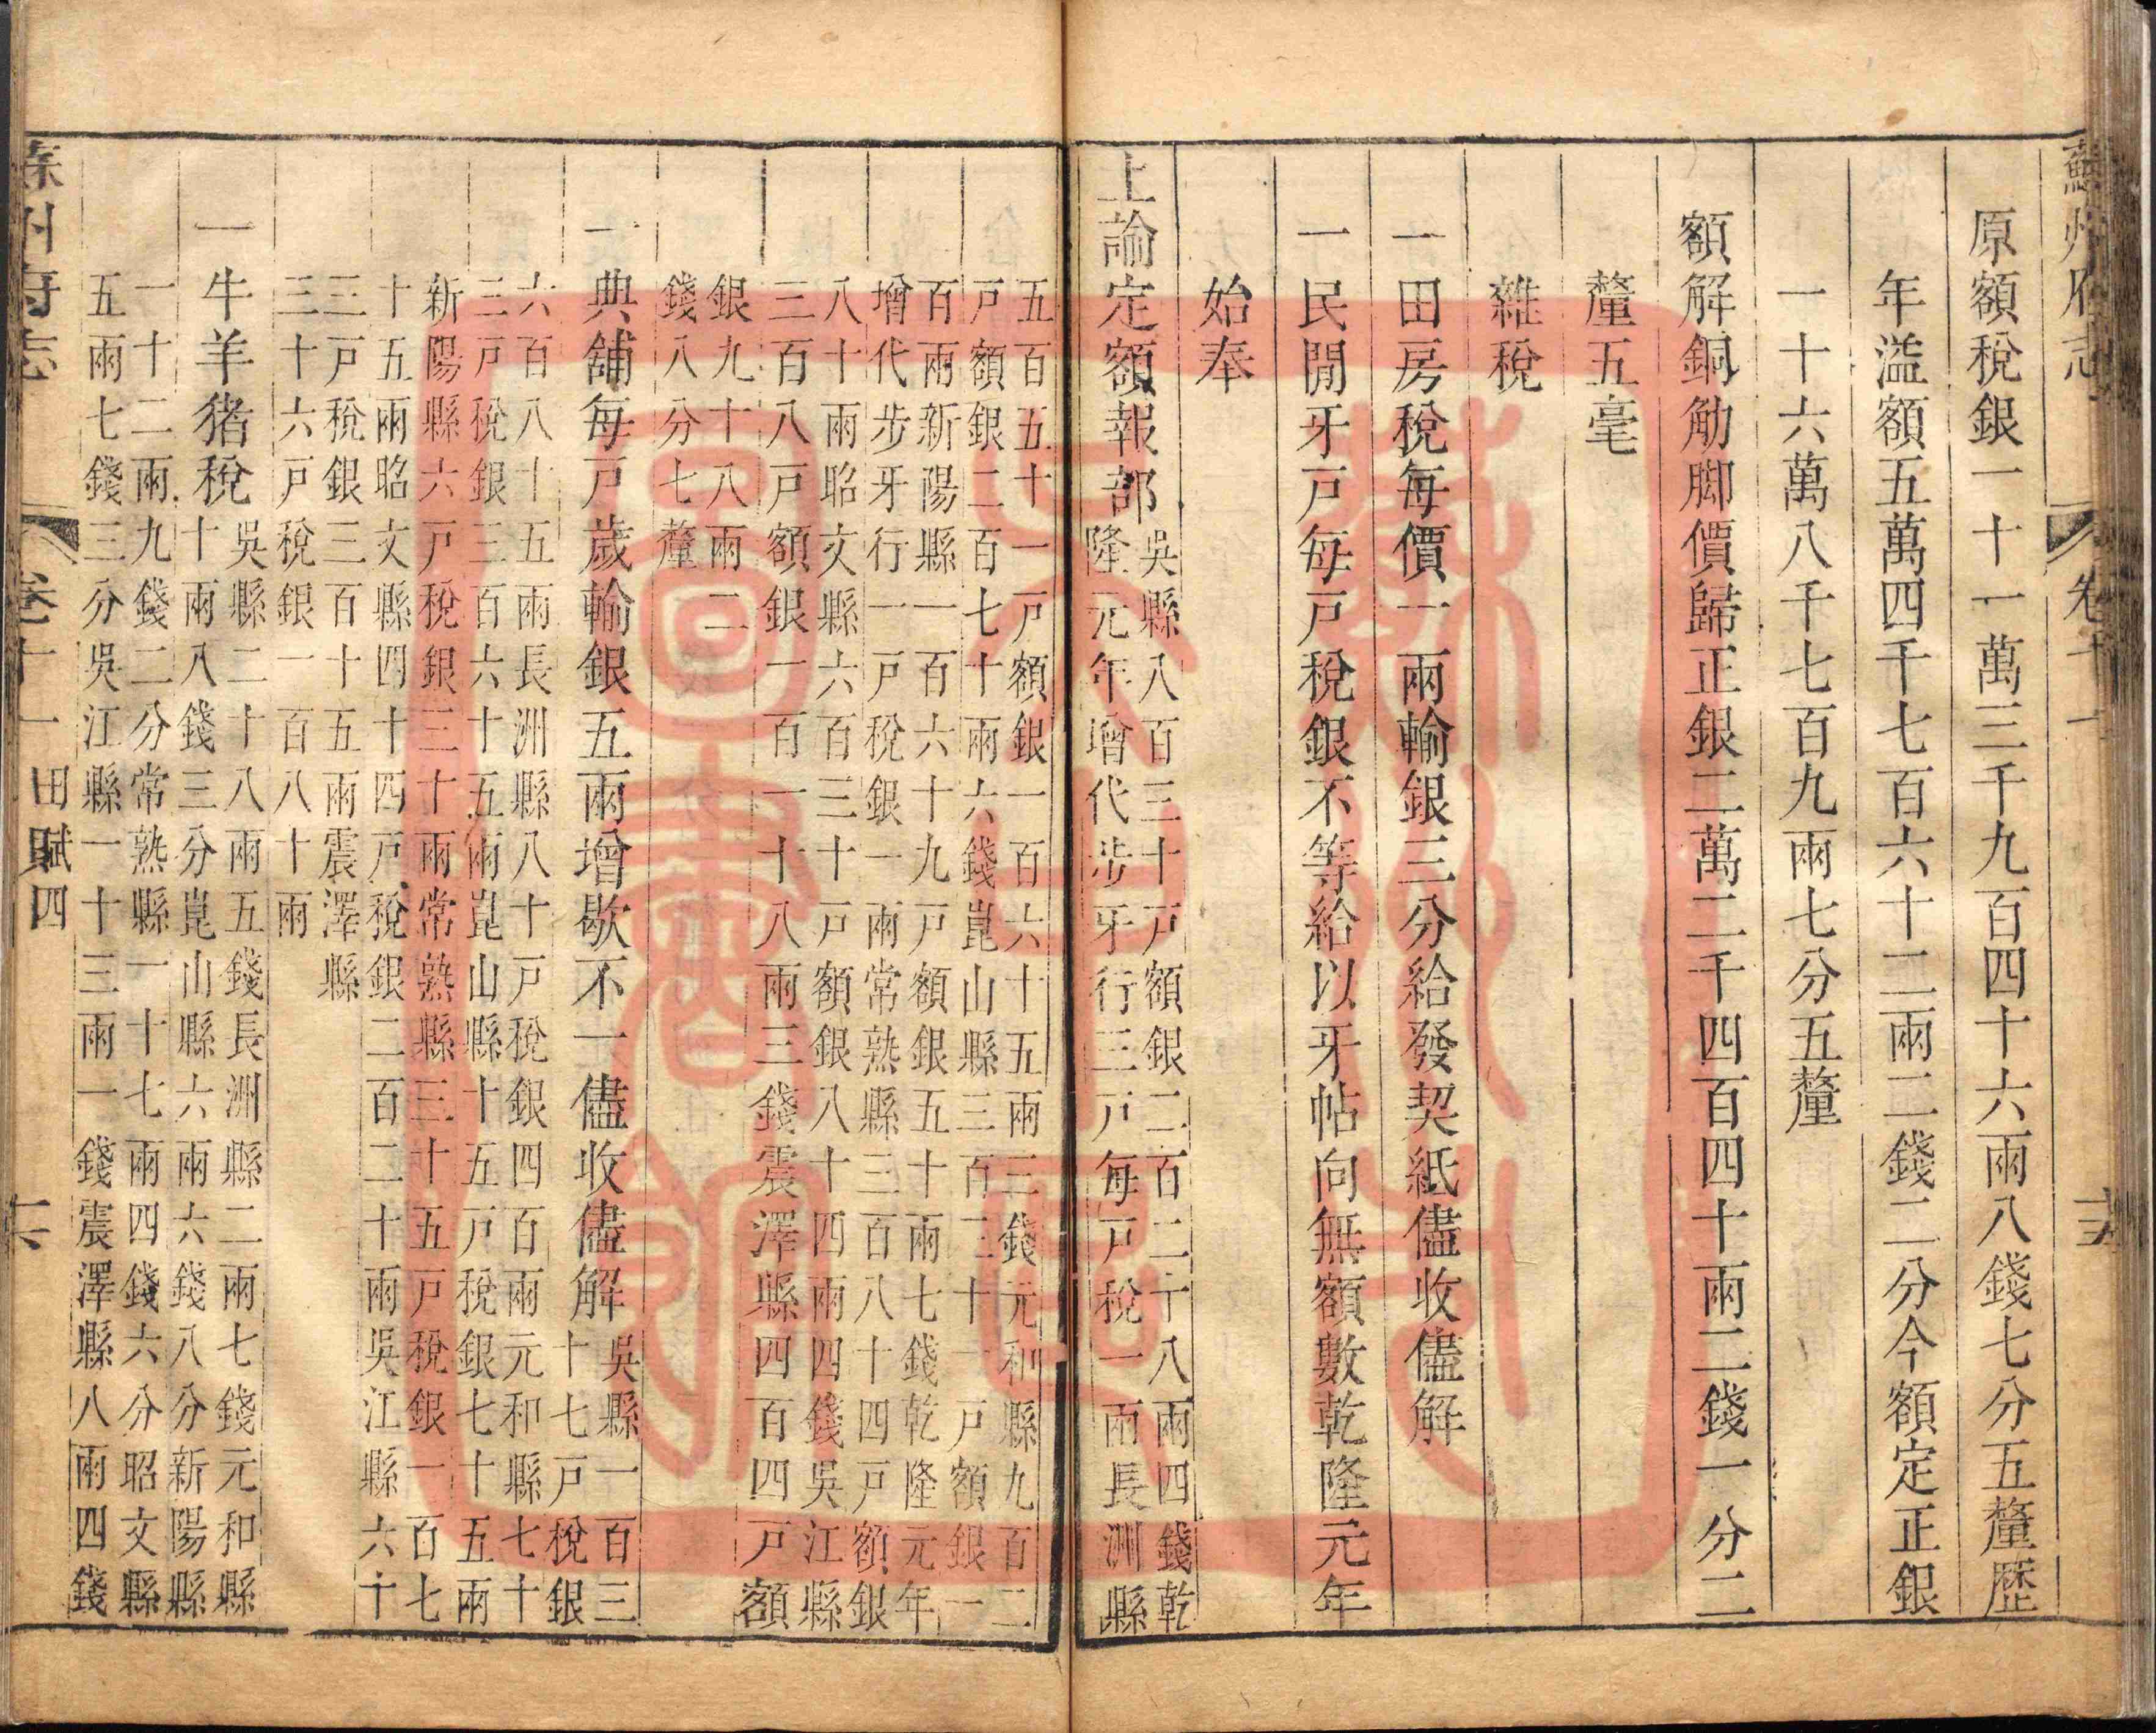 蘇州府志 卷十一 十五
原額稅銀一十一萬三千九百四十六兩八錢七分五釐歷
年溢額五萬四千七百六十二兩二錢二分今額定正銀
一十六萬八千七百九兩七分五釐
額解銅觔脚價歸正銀二萬二千四百四十兩二錢一分二
釐五毫
雜稅
一田房稅每價一兩輸銀三分給發契紙儘收儘解
一民間牙戶每戶稅銀不等給以牙帖向無額數乾隆元年
始奉
上諭定額報部
吳縣八百三十戶額銀二百二十八兩四錢乾
隆元年增代步牙行三戶每戶稅一兩長洲縣
五百五十一戶額銀一百六十五兩三錢元和縣九百二
戶額銀二百七十兩六錢崑山縣三百三十一戶額銀一
百兩新陽縣一百六十九戶額銀五十兩七錢乾隆元年
增代步牙行一戶稅銀一兩常熟縣三百八十四戶額銀
八十兩昭文縣六百三十戶額銀八十四兩四錢吳江縣
三百八戶額銀一百一十八兩三錢震澤縣四百四戶額
銀九十八兩二
錢八分七釐
一典舖每戶歲輸銀五兩增歇不一儘收儘解
吳縣一百三
十七戶稅銀
六百八十五兩長洲縣八十戶稅銀四百兩元和縣七十
三戶稅銀三百六十五兩崑山縣十五戶稅銀七十五兩
新陽縣六戶稅銀三十兩常熟縣三十五戶稅銀一百七
十五兩昭文縣四十四戶稅銀二百二十兩吳江縣六十
三戶稅銀三百十五兩震澤縣
三十六戶稅銀一百八十兩
一牛羊猪稅
吳縣二十八兩五錢長洲縣二兩七錢元和縣
十兩八錢三分崑山縣六兩六錢八分新陽縣
一十二兩九錢二分常熟縣一十七兩四錢六分昭文縣
五兩七錢三分吳江縣一十三兩一錢震澤縣八兩四錢
蘇州府志 卷十一 田賦四 十六
圖書館